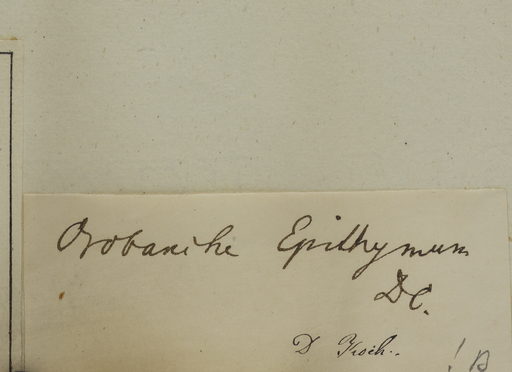 Orobanche Epithymum
DC.
D Koch.
! B